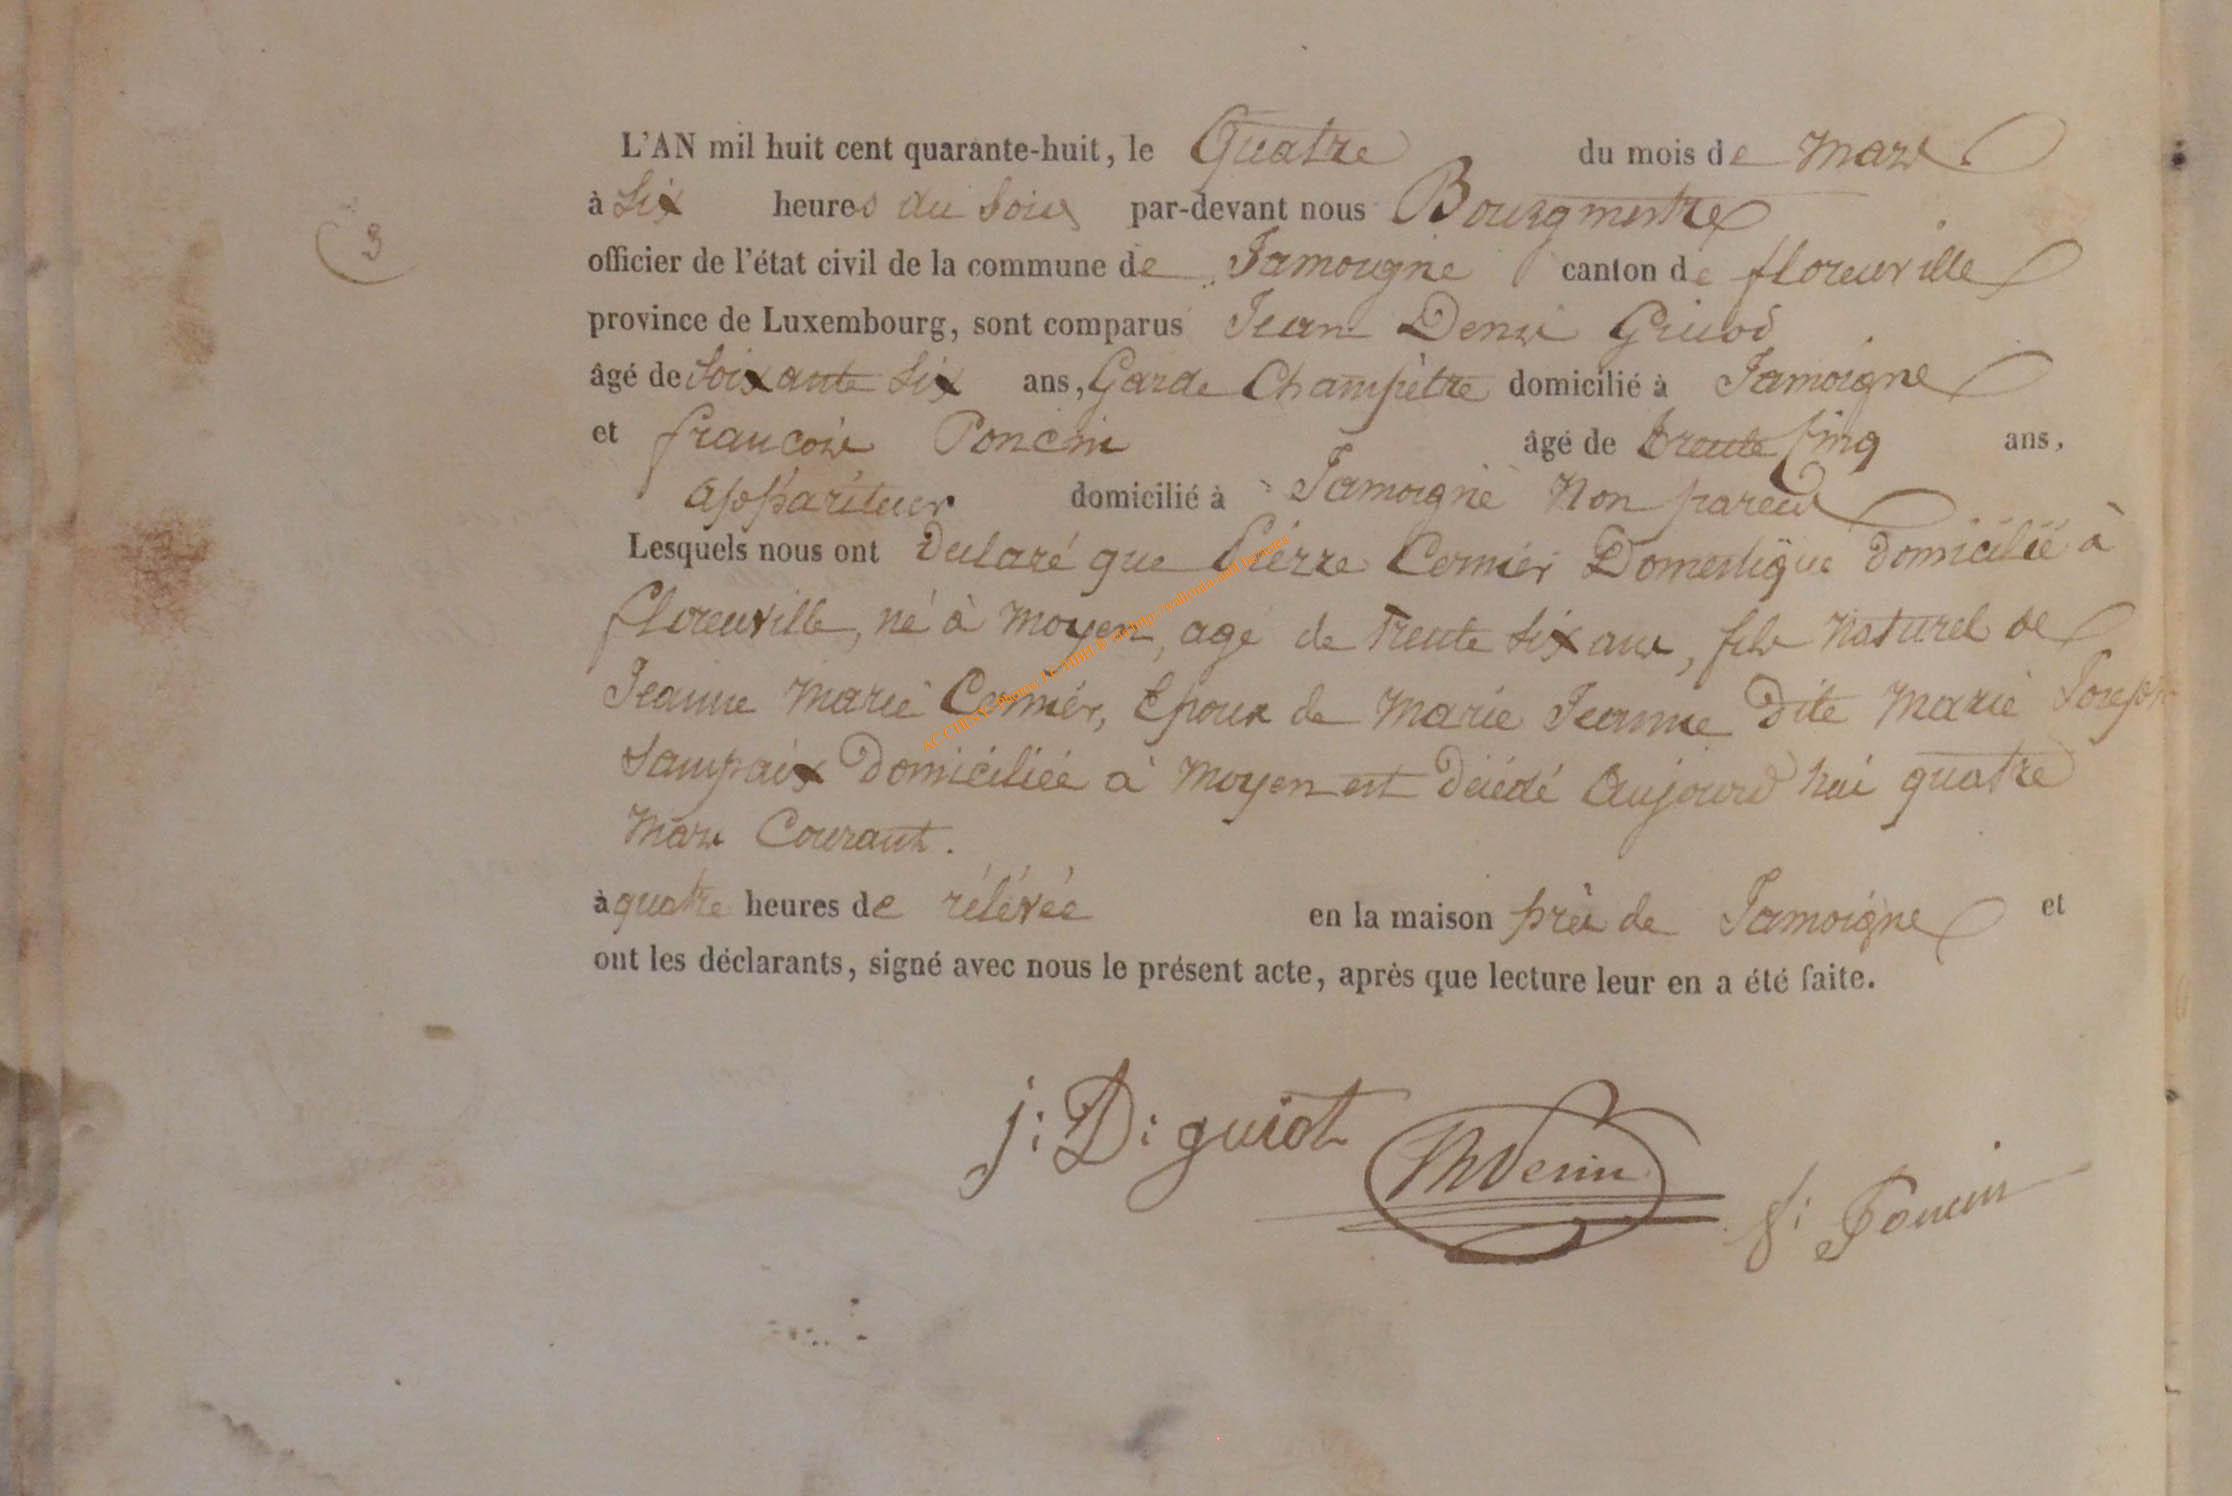 L'AN mil huit cent quarante-huit, le Quatre du mois de Mars
à Six heures du Soir par-devant nous Bourgmestre
3
officier de l'état civil de la commune de Jamoigne canton de florenville
province de Luxembourg, sont comparus Jean Denis Guiot
âgé de Soixante Six ans, Garde Champètre domicilié à Jamoigne
et françois Poncin âgé de trente Cinq ans,
appariteur domicilié à Jamoigne Non parens
Lesquels nous ont Déclaré que Pierre Domestique Domicilié à
florenville, né à Moyen, agé de Trente Six ans, fils Naturel de
Jeanne Marie Epoux de Marie Jeanne Dite Marie Joseph
Sampaix Domiciliée à Moyen est Décédé Aujourd'hui quatre
Mars Courant.
à quatre heures de rélévée en la maison près de Jamoigne et
ont les déclarants, signé avec nous le présent acte, après que lecture leur en a été faite.
j: D: guiot
f: Poncin